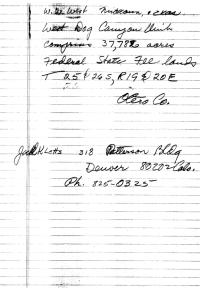 W. West Texas.
West Dog Canyon Unit
comprises 37,782 acres
Federal State Fee lands
T 25 & 26 S, R 19 & 20 E
Otero Co.
Jack Klotts 318 Patterson Bldg
Denver 80202 Colo.
Ph. 825-0325